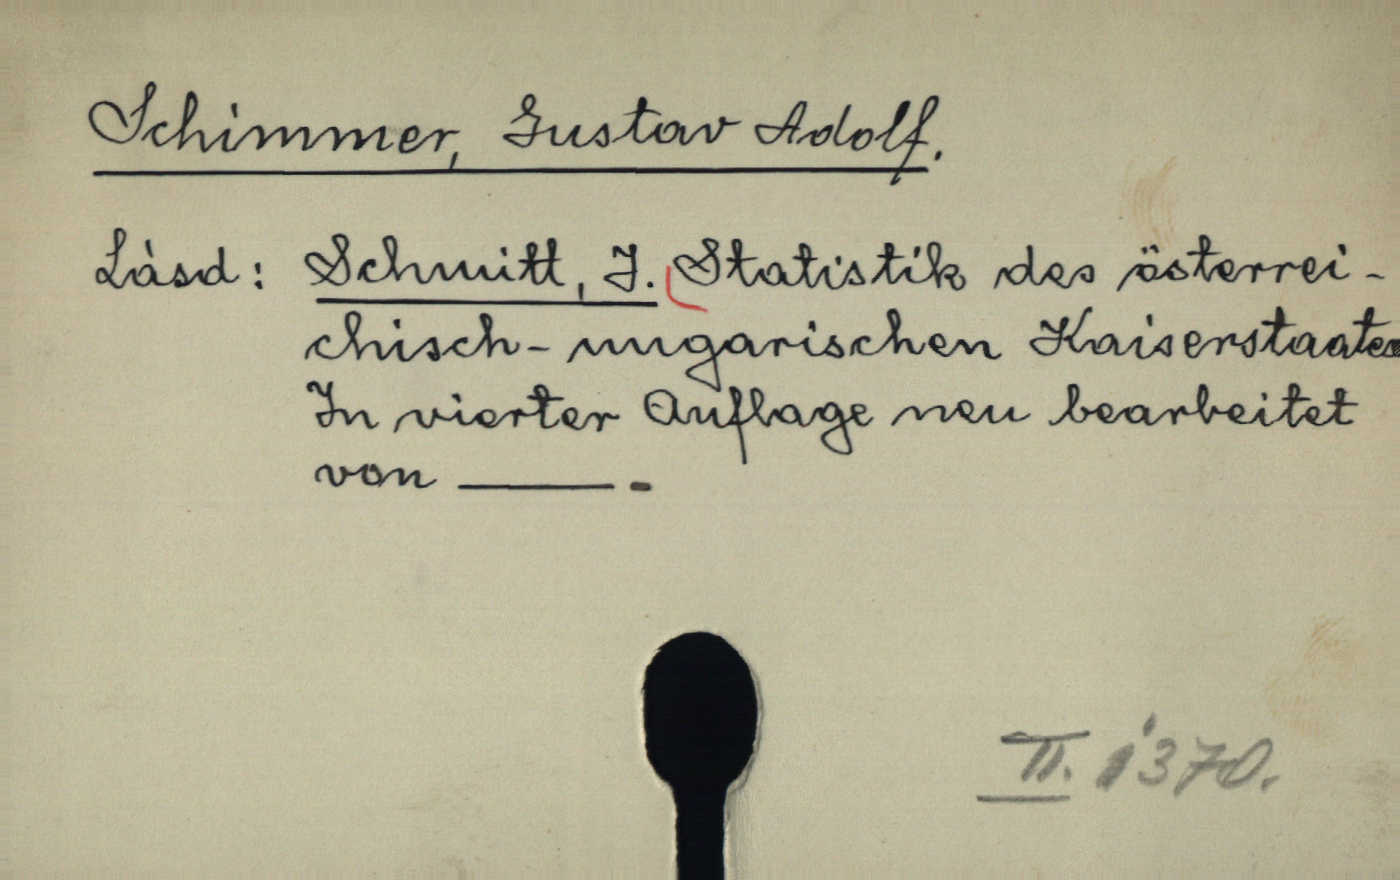 Schimmer, Gustav Adolf.
Lásd: Schmitt, J. Statistik des österrei-
chisch-ungarischen Kaiserstaates
In vierter Auflage neu bearbeitet
von ———.
II. 1370.